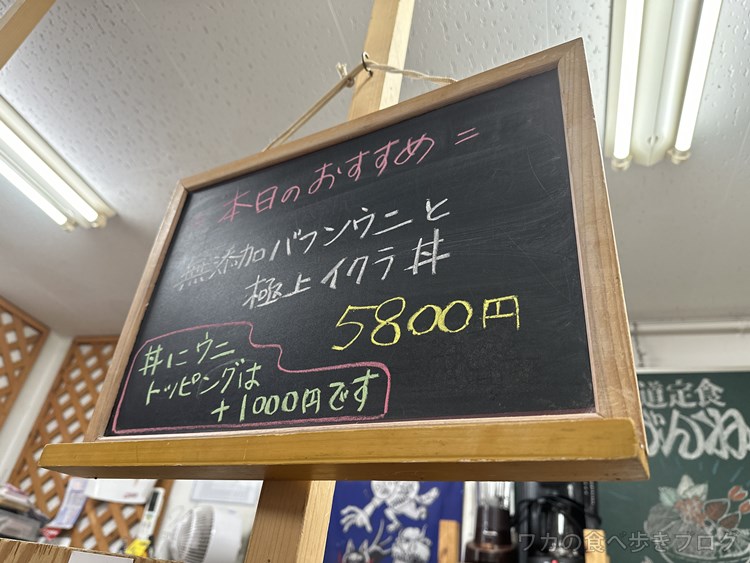 = 本日のおすすめ =
無添加バフンウニと
極上イクラ丼
5800円
丼にウニ
トッピングは
+1000円です
道定食
ワカの食べ歩きブログ